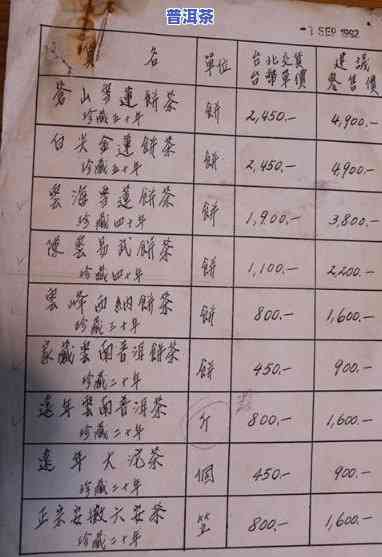 普洱茶
-1 SEP 1992
貨名 單位 台北交貨 建議
台幣單價 零售價
蒼山芳蓮餅茶 餅 2,450.- 4,900.-
珍藏五十年
白尖金蓮餅茶 餅 2,450.- 4,900.-
珍藏五十年
雲海芳蓮餅茶 餅 1,900.- 3,800.-
珍藏四十年
陳雲易武餅茶 餅 1,100.- 2,200.-
珍藏四十年
雲峰西納餅茶 餅 800.- 1,600.-
珍藏三十年
家藏雲南普洱餅茶 餅 450.- 900.-
珍藏二十年
遠年雲南普洱茶 斤 800.- 1,600.-
珍藏二十年
遠年大沱茶 個 450.- 900.-
珍藏二十年
正宗安徽六安茶 800.- 1,600.-
珍藏二十年